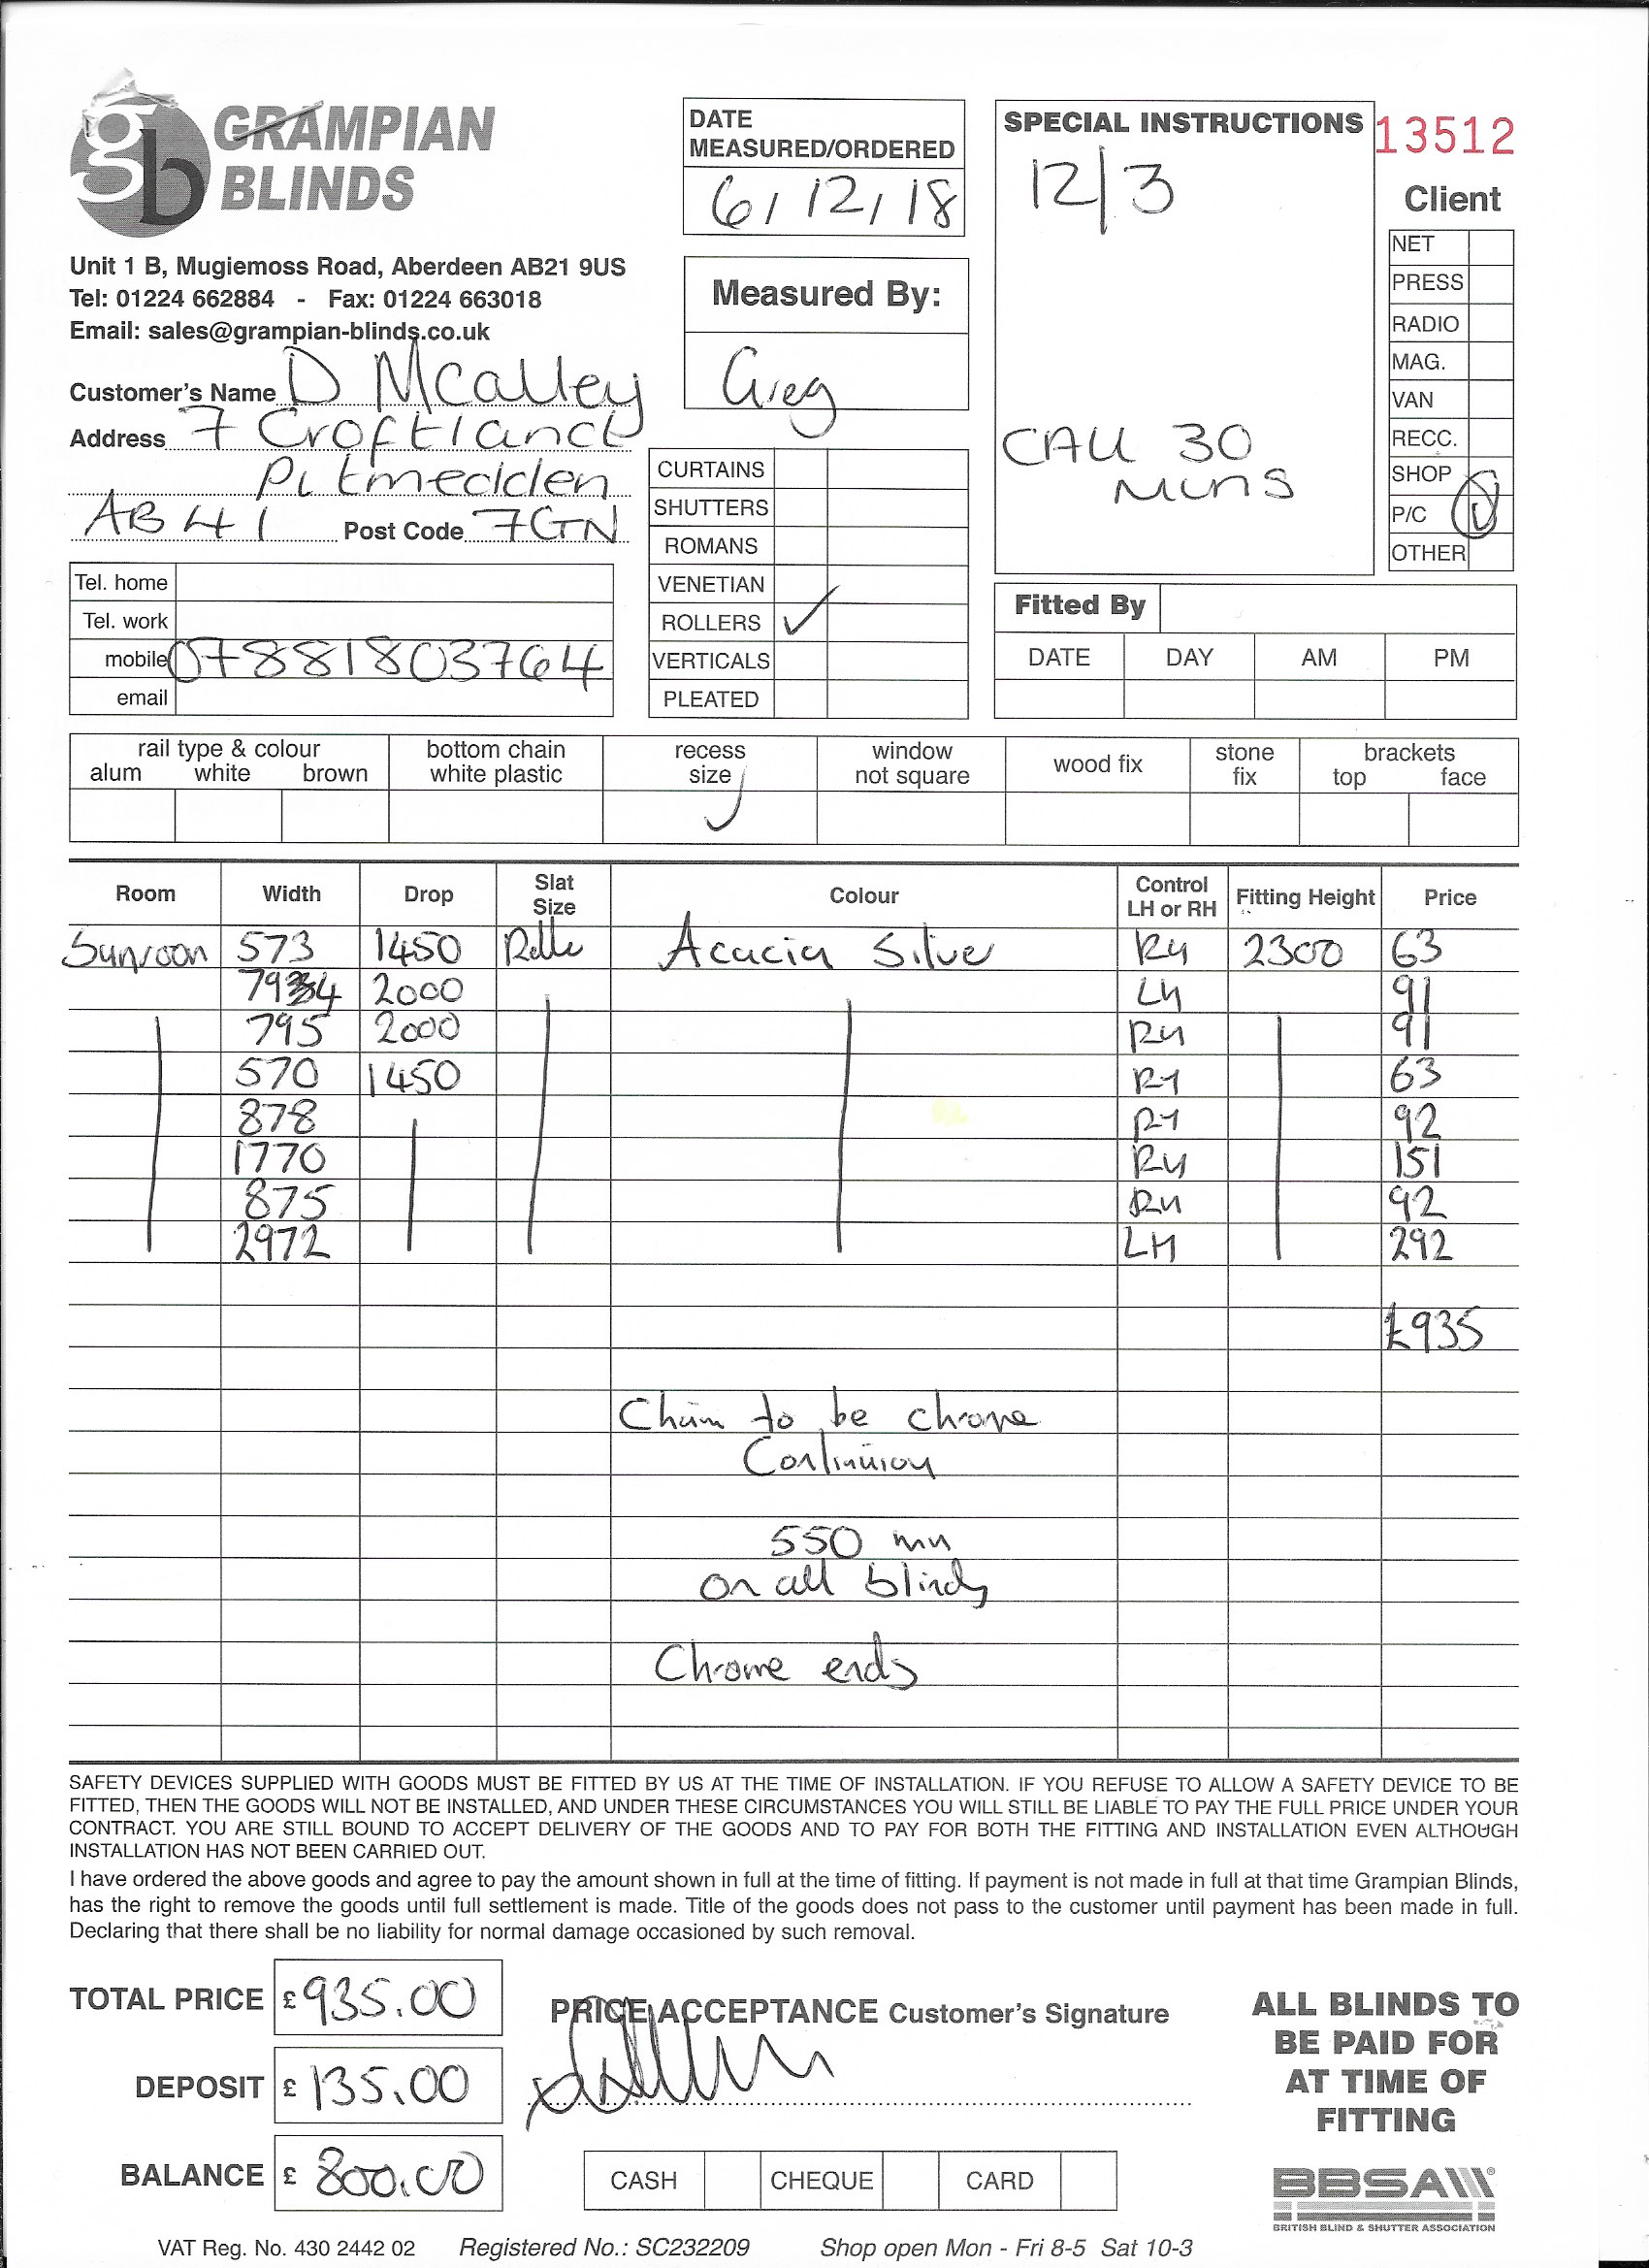 gb GRAMPIAN
BLINDS
Unit 1 B, Mugiemoss Road, Aberdeen AB21 9US
Tel: 01224 662884 - Fax: 01224 663018
Email: sales@grampian-blinds.co.uk
DATE
MEASURED/ORDERED
6/12/18
Measured By:
Greg
SPECIAL INSTRUCTIONS
12/3
CALL 30
MINS
13512
Client
NET
PRESS
RADIO
MAG.
VAN
RECC.
SHOP
P/C
OTHER
Customer's Name D McAlley
Address 7 Croftland
Pitmedden
AB41 Post Code 7GN
Tel. home
Tel. work
mobile 07881803764
email
CURTAINS
SHUTTERS
ROMANS
VENETIAN
ROLLERS ✓
VERTICALS
PLEATED
Fitted By
DATE DAY AM PM
rail type & colour
alum white brown
bottom chain
white plastic
recess
size ✓
window
not square
wood fix
stone
fix
brackets
top face
Room Width Drop Slat Size Colour Control LH or RH Fitting Height Price
Sunroom 573 1450 Acacia Silver RH 2300 63
794 2000 LH 91
795 2000 RH 91
570 1450 RH 63
878 RH 92
1770 RH 151
875 RH 92
2972 LH 292
£935
Chain to be chrome
550 mm
on all blinds
Chrome ends
SAFETY DEVICES SUPPLIED WITH GOODS MUST BE FITTED BY US AT THE TIME OF INSTALLATION. IF YOU REFUSE TO ALLOW A SAFETY DEVICE TO BE
FITTED, THEN THE GOODS WILL NOT BE INSTALLED, AND UNDER THESE CIRCUMSTANCES YOU WILL STILL BE LIABLE TO PAY THE FULL PRICE UNDER YOUR
CONTRACT. YOU ARE STILL BOUND TO ACCEPT DELIVERY OF THE GOODS AND TO PAY FOR BOTH THE FITTING AND INSTALLATION EVEN ALTHOUGH
INSTALLATION HAS NOT BEEN CARRIED OUT.
I have ordered the above goods and agree to pay the amount shown in full at the time of fitting. If payment is not made in full at that time Grampian Blinds,
has the right to remove the goods until full settlement is made. Title of the goods does not pass to the customer until payment has been made in full.
Declaring that there shall be no liability for normal damage occasioned by such removal.
TOTAL PRICE £ 935.00
DEPOSIT £ 135.00
BALANCE £ 800.00
PRICE ACCEPTANCE Customer's Signature
CASH CHEQUE CARD
ALL BLINDS TO
BE PAID FOR
AT TIME OF
FITTING
BBSA
BRITISH BLIND & SHUTTER ASSOCIATION
VAT Reg. No. 430 2442 02 Registered No.: SC232209 Shop open Mon - Fri 8-5 Sat 10-3